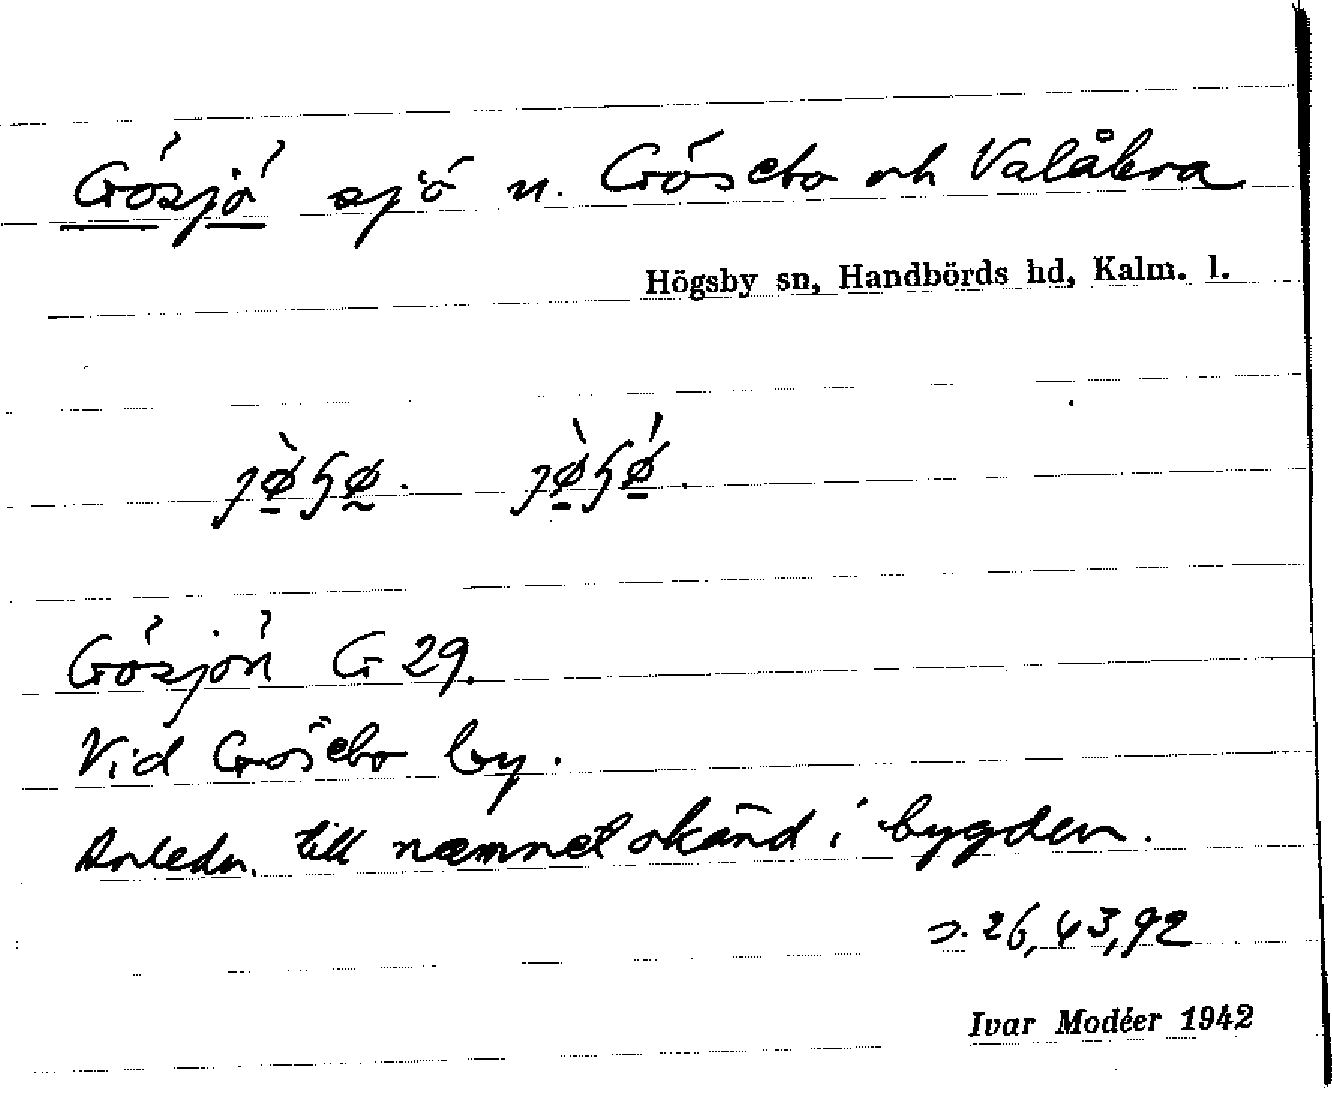 Gösjö sjö n. Gösebo och Valåkra
Högsby sn, Handbörds hd, Kalm. l.
Gösjön G 29.
Vid Gösebo by.
Anledn. till næmnet okänd i bygden.
s. 26, 43, 92
Ivar Modéer 1942